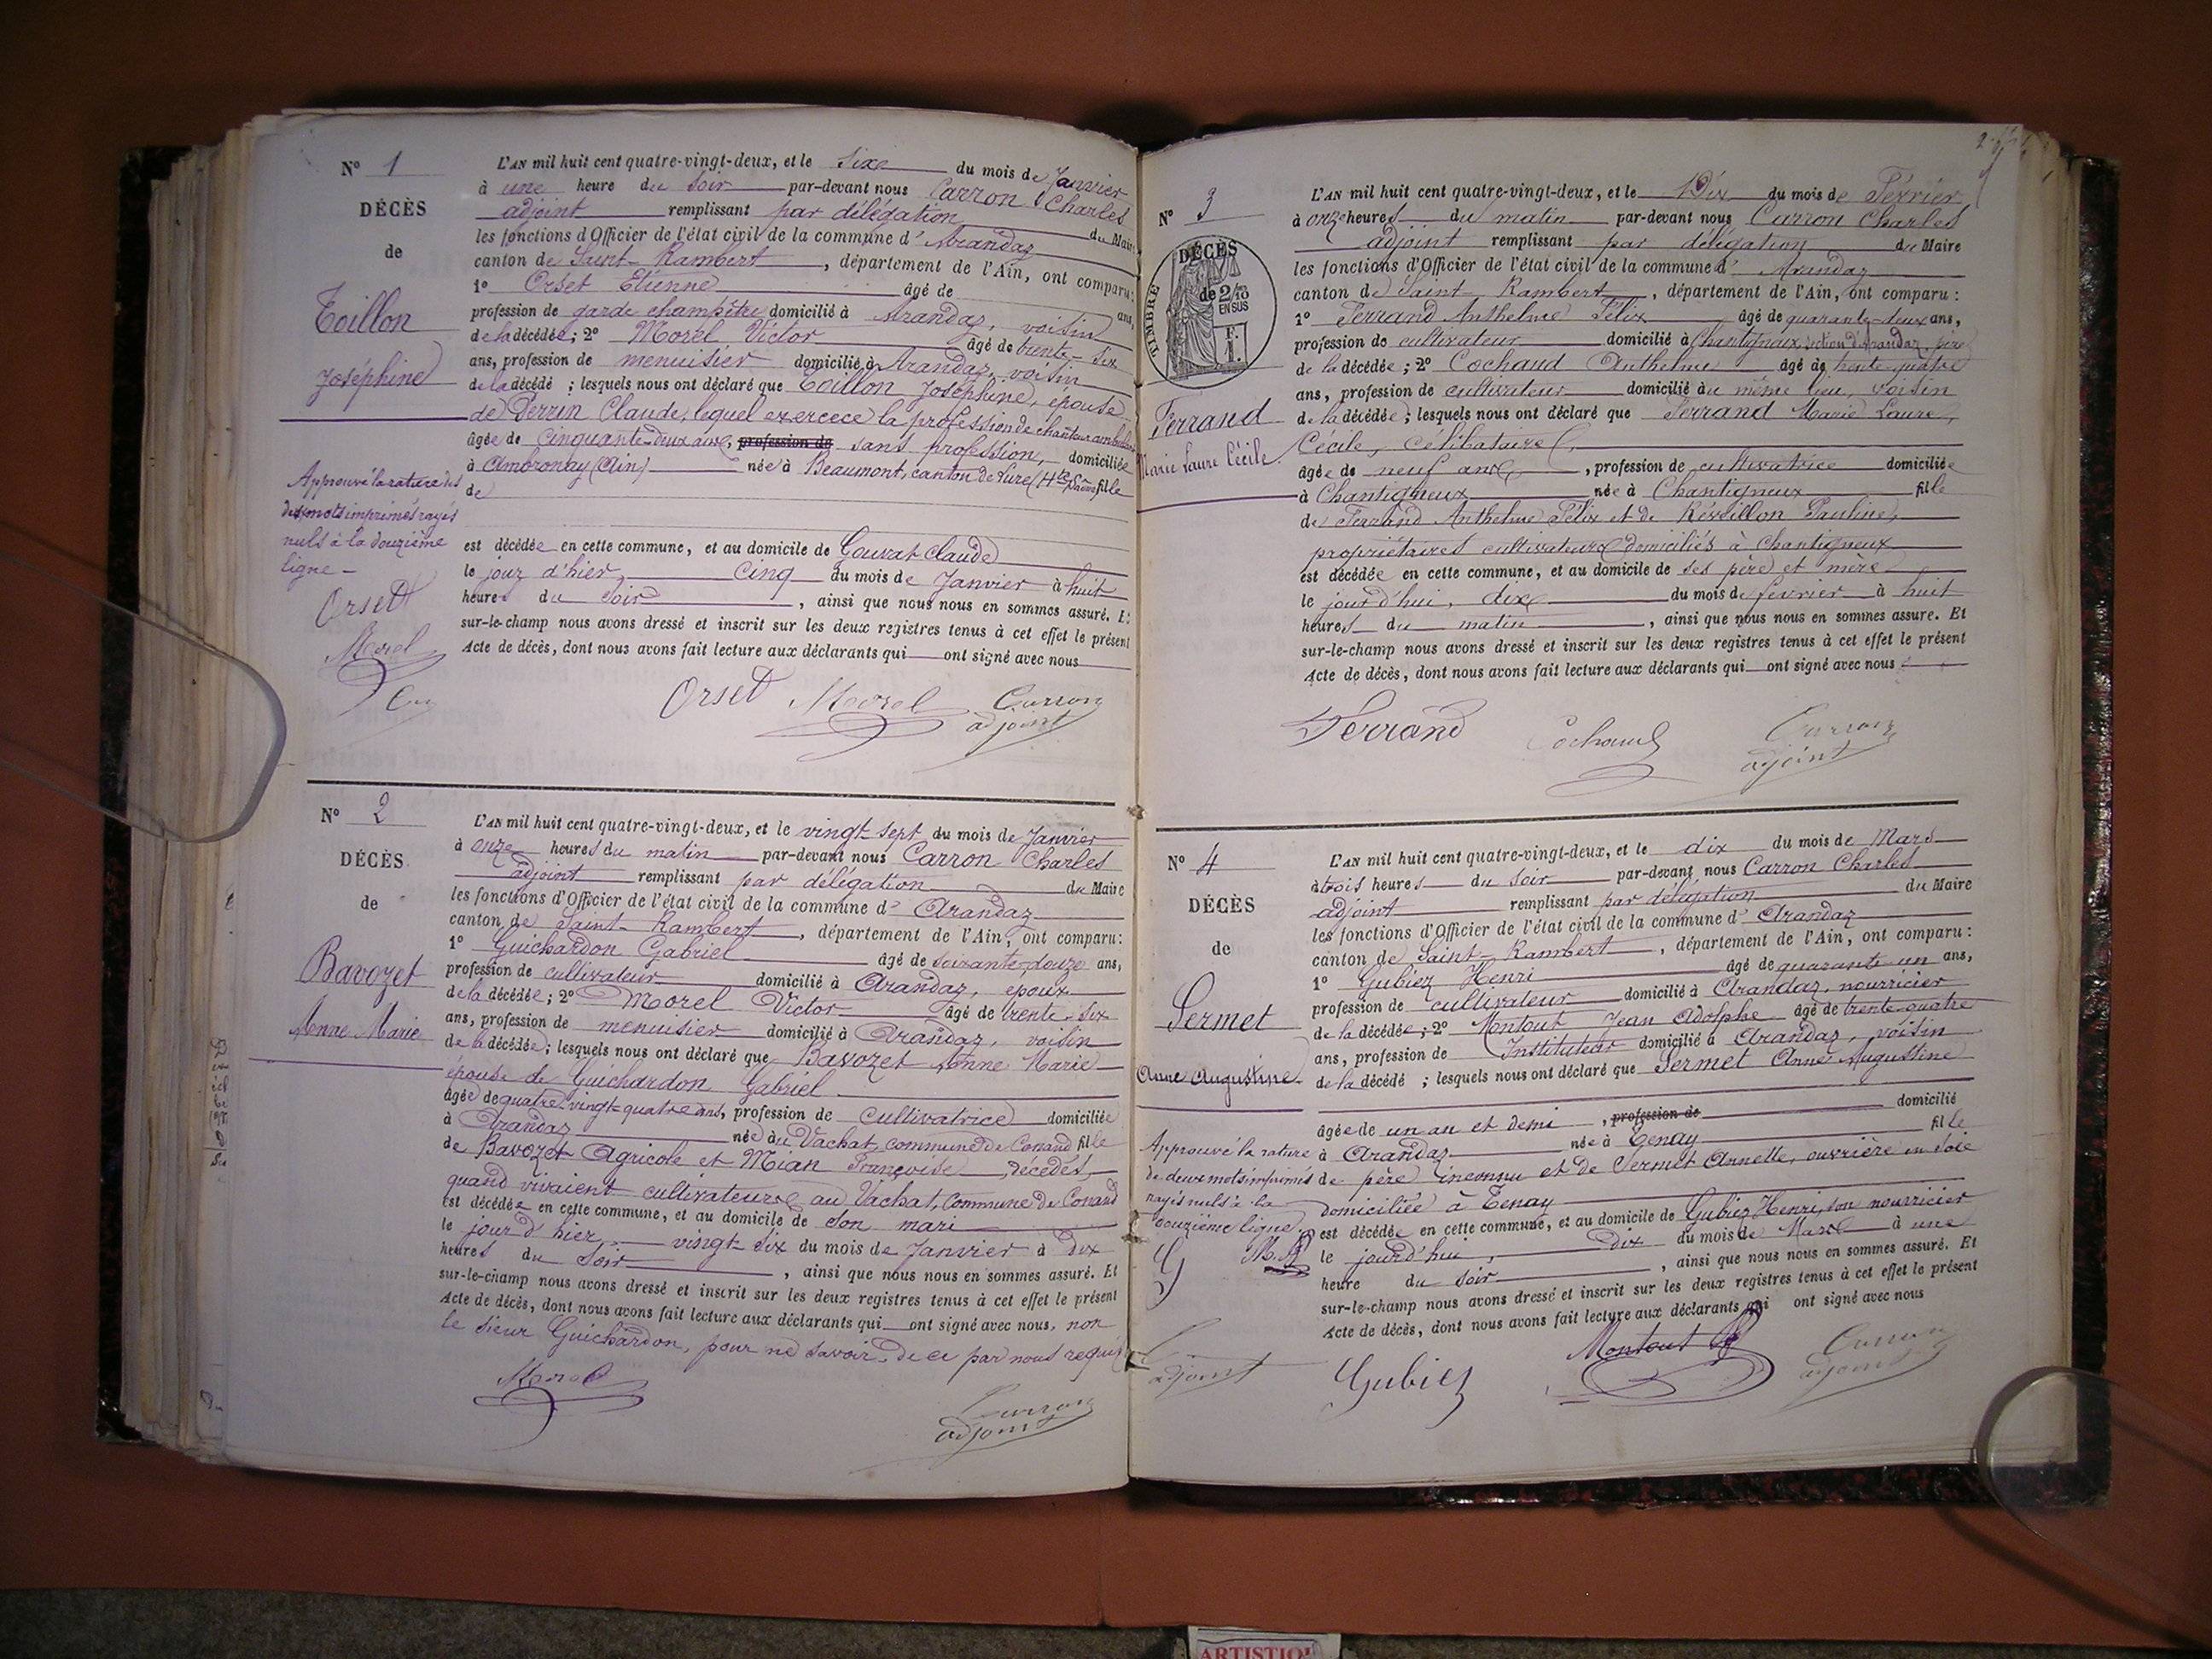 N° 1
DÉCÈS
de
Toillon
Joséphine
L'AN mil huit cent quatre-vingt-deux, et le Six du mois de Janvier
à une heure du soir par-devant nous Carron Charles
adjoint remplissant par délégation du Maire
les fonctions d'Officier de l'état civil de la commune d' Arandaz
canton de Saint-Rambert, département de l'Ain, ont comparu:
1° Orset Etienne âgé de ans,
profession de garde champêtre domicilié à Arandaz, voisin
de la décédée; 2° Morel Victor âgé de trente-six
ans, profession de menuisier domicilié à Arandaz, voisin
de la décédé ; lesquels nous ont déclaré que Toillon Joséphine, épouse
de Perrin Claude, lequel exercece la profession de chanteur ambulant
âgée de cinquante-deux ans, profession de sans profession, domiciliée
à Ambronay (Ain) née à Beaumont, canton de Lure (Hte Saône) fille
de
est décédée en cette commune, et au domicile de Gouvat Claude
le jour d'hier, cinq du mois de Janvier à huit
heures du soir, ainsi que nous nous en sommes assuré. Et
sur-le-champ nous avons dressé et inscrit sur les deux registres tenus à cet effet le présent
Acte de décès, dont nous avons fait lecture aux déclarants qui ont signé avec nous
Approuvé la rature des
deux mots imprimés rayés
nuls à la douzième
ligne -
Orset
Morel
Orset Morel Carron
adjoint
N° 2
DÉCÈS
de
Bavozet
Anne Marie
L'AN mil huit cent quatre-vingt-deux, et le vingt-sept du mois de Janvier
à onze heures du matin par-devant nous Carron Charles
adjoint remplissant par délégation du Maire
les fonctions d'Officier de l'état civil de la commune d' Arandaz
canton de Saint-Rambert, département de l'Ain, ont comparu:
1° Guichardon Gabriel âgé de soixante-douze ans,
profession de cultivateur domicilié à Arandaz, époux
de la décédée; 2° Morel Victor âgé de trente-six
ans, profession de menuisier domicilié à Arandaz, voisin
de la décédée; lesquels nous ont déclaré que Bavozet Anne Marie
épouse de Guichardon Gabriel
âgée de quatre-vingt-quatre ans, profession de cultivatrice domiciliée
à Arandaz née au Vachat, commune de Conand fille
de Bavozet Agricole et Mian Françoise décédés,
quand vivaient cultivateurs au Vachat, commune de Conand
est décédée en cette commune, et au domicile de son mari
le jour d'hier, vingt-six du mois de Janvier à dix
heures du soir, ainsi que nous nous en sommes assuré. Et
sur-le-champ nous avons dressé et inscrit sur les deux registres tenus à cet effet le présent
Acte de décès, dont nous avons fait lecture aux déclarants qui ont signé avec nous, non
le sieur Guichardon, pour ne savoir, de ce par nous requis
Morel
Carron
adjoint
N° 3
DÉCÈS
TIMBRE
de 2/10
EN SUS
Ferrand
Marie Laure Cécile
L'AN mil huit cent quatre-vingt-deux, et le Dix du mois de Février
à onze heures du matin par-devant nous Carron Charles
adjoint remplissant par délégation du Maire
les fonctions d'Officier de l'état civil de la commune d' Arandaz
canton de Saint-Rambert, département de l'Ain, ont comparu :
1° Ferrand Anthelme Félix âgé de quarante-deux ans,
profession de cultivateur domicilié à Chantigneux, section d'Arandaz, père
de la décédée ; 2° Cochaud Anthelme âgé de trente-quatre
ans, profession de cultivateur domicilié au même lieu, voisin
de la décédée ; lesquels nous ont déclaré que Ferrand Marie Laure,
Cécile, célibataire,
âgée de neuf ans, profession de cultivatrice domiciliée
à Chantigneux née à Chantigneux fille
de Ferrand Anthelme Félix et de Révillon Pauline,
propriétaires cultivateurs domiciliés à Chantigneux
est décédée en cette commune, et au domicile de ses père et mère
le jour d'hui, dix du mois de février à huit
heures du matin, ainsi que nous nous en sommes assuré. Et
sur-le-champ nous avons dressé et inscrit sur les deux registres tenus à cet effet le présent
Acte de décès, dont nous avons fait lecture aux déclarants qui ont signé avec nous
Ferrand Cochaud Carron
adjoint
N° 4
DÉCÈS
de
Sermet
Anne Augustine
L'AN mil huit cent quatre-vingt-deux, et le dix du mois de Mars
à trois heures du soir par-devant nous Carron Charles
adjoint remplissant par délégation du Maire
les fonctions d'Officier de l'état civil de la commune d' Arandaz
canton de Saint-Rambert, département de l'Ain, ont comparu :
1° Gubiez Henri âgé de quarante-un ans,
profession de cultivateur domicilié à Arandaz, nourricier
de la décédée ; 2° Montout Jean Adolphe âgé de trente-quatre
ans, profession de Instituteur domicilié à Arandaz, voisin
de la décédé ; lesquels nous ont déclaré que Sermet Anne Augustine
âgée de un an et demi, profession de domicilié
à Arandaz née à Tenay fille
de père inconnu et de Sermet Annette, ouvrière en soie
domiciliée à Tenay
est décédée en cette commune, et au domicile de Gubiez Henri, son nourricier
le jourd'hui, dix du mois de Mars à une
heure du soir, ainsi que nous nous en sommes assuré. Et
sur-le-champ nous avons dressé et inscrit sur les deux registres tenus à cet effet le présent
Acte de décès, dont nous avons fait lecture aux déclarants qui ont signé avec nous
Approuvé la rature
de deux mots imprimés
rayés nuls à la
onzième ligne.
G M.A
adjoint
Gubiez Montout Carron
adjoint
ARTISTIQU